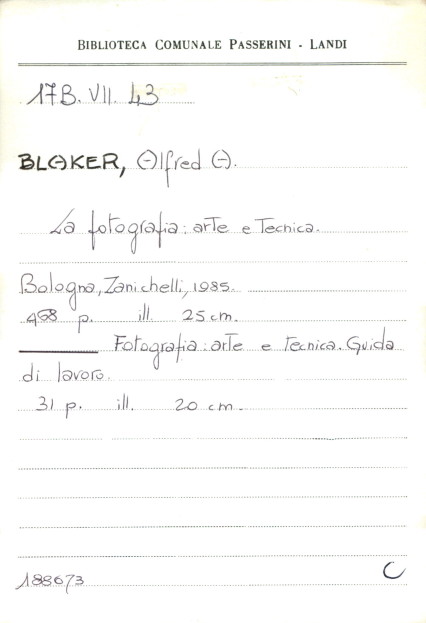 BIBLIOTECA COMUNALE PASSERINI - LANDI
17B. VII. 43
BLAKER, Alfred A.
La fotografia: arte e Tecnica.
Bologna, Zanichelli, 1985.
468 p. ill. 25 cm.
Fotografia: arte e tecnica. Guida
di lavoro.
31 p. ill. 20 cm.
188673
C